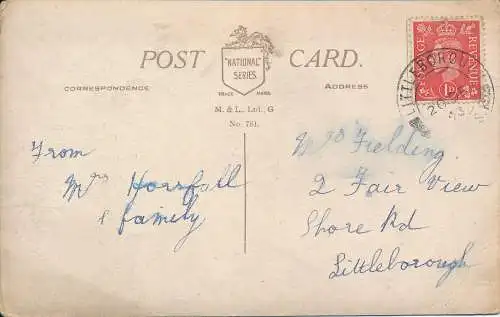 POST CARD.
"NATIONAL"
SERIES.
TRADE MARK.
CORRESPONDENCE
ADDRESS
M. & L., Ltd., G
No. 781.
POSTAGE REVENUE
1D
LITTLEBOROUGH
From
Mrs Horsfall
& family
Mrs Fielding
2 Fair View
Shore Rd
Littleborough